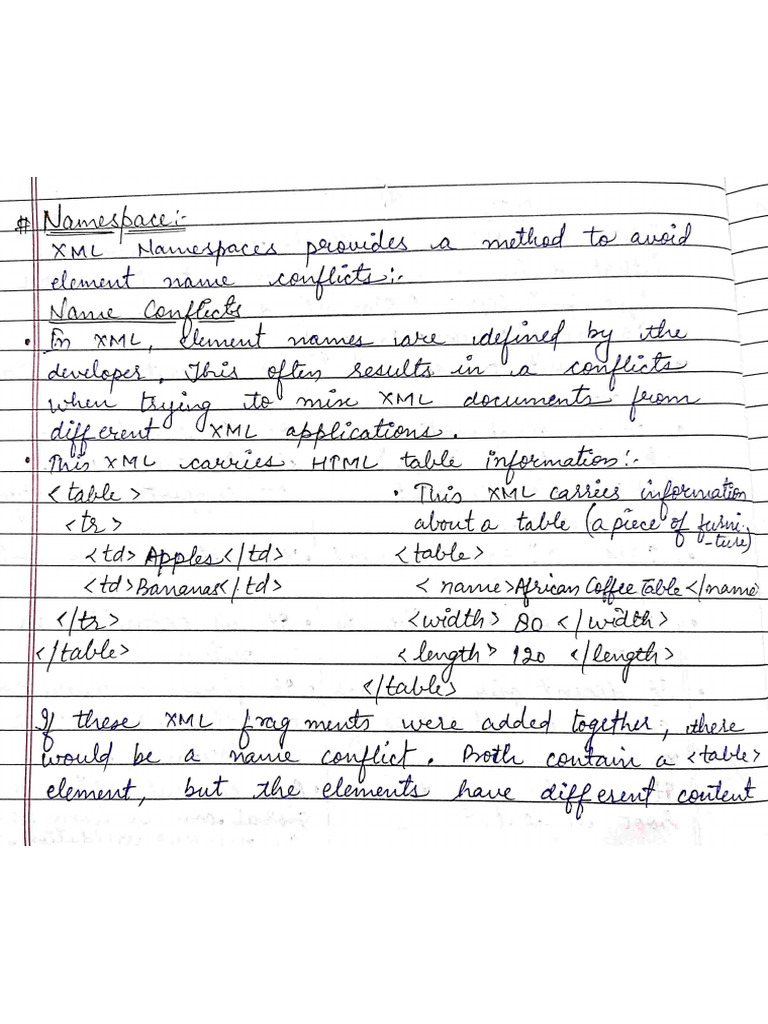 # Namespace:-
XML Namespaces provides a method to avoid
element name conflicts:-
Name Conflicts
• In XML, element names are defined by the
developer. This often results in a conflicts
when trying to mix XML documents from
different XML applications.
• This XML carries HTML table information:-
<table>
<tr>
<td>Apples</td>
<td>Bananas</td>
</tr>
</table>
• This XML carries information
about a table (a piece of furni-
-ture)
<table>
<name>African Coffee Table</name
<width> 80 </width>
<length> 120 </length>
</table>
If these XML fragments were added together, there
would be a name conflict. Both contain a <table>
element, but the elements have different content